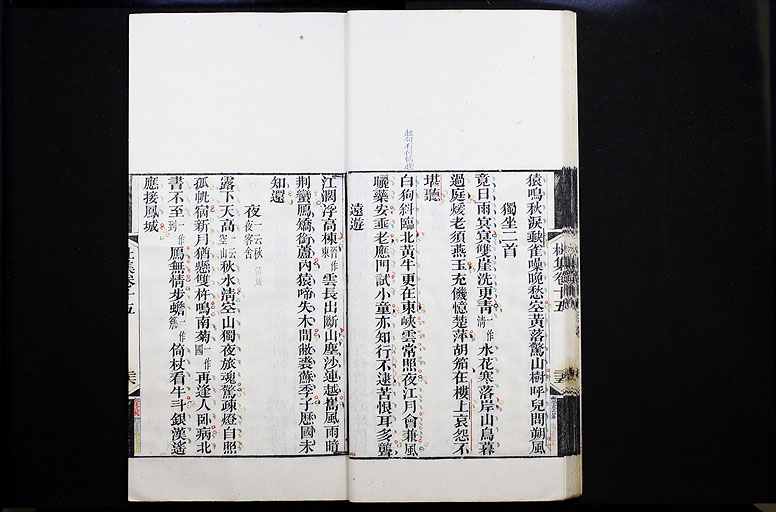 猿鳴秋淚缺雀噪晚愁空黃落驚山樹呼兒問朔風
獨坐二首
竟日雨冥冥雙崖洗更青一作清水花寒落岸山鳥暮
過庭煖老須燕玉充饑憶楚萍胡笳在樓上哀怨不
堪聽
白狗斜臨北黃牛更在東峽雲常照夜江月會兼風
曬藥安垂老應門試小童亦知行不逮苦恨耳多聾
遠遊
江闊浮高棟晉作東雲長出斷山塵沙連越巂風雨暗
荊蠻鴈矯銜蘆內猿啼失木間敝裘蘇季子歷國未
知還
夜一云秋夜客舍
露下天高一云空山秋水清空山獨夜旅魂驚疎燈自照
孤帆宿新月猶懸雙杵鳴南菊一作國再逢人臥病北
書不至一作到鴈無情步蟾一作簷倚杖看牛斗銀漢遙
應接鳳城